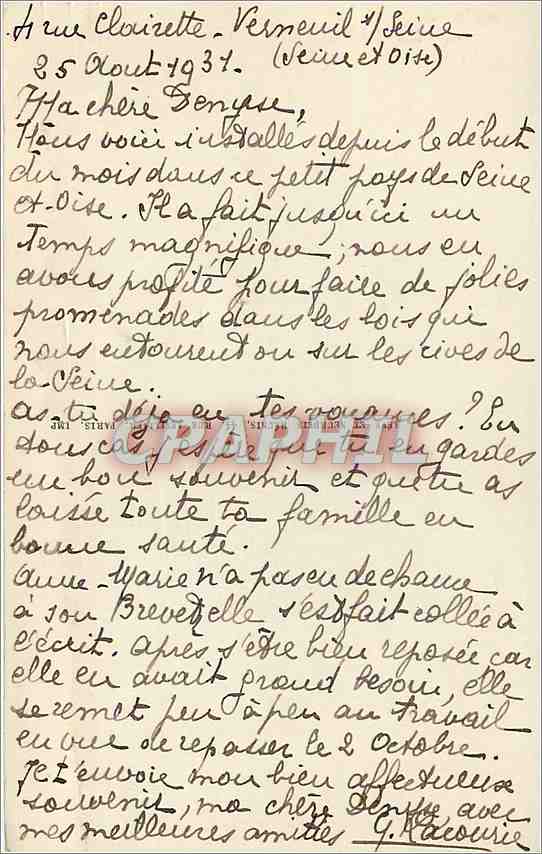 4 rue Clairette - Verneuil s/Seine
25 Aout 1931. (Seine et Oise)
Ma chère Denyse,
Nous voici installés depuis le début
du mois dans ce petit pays de Seine
et-Oise. Il a fait jusqu'ici un
temps magnifique ; nous en
avons profité pour faire de jolies
promenades dans les bois qui
nous entourent ou sur les rives de
la Seine.
As-tu déjà eu tes vacances ? En
tous cas j'espère que tu en gardes
un bon souvenir et que tu as
laissé toute ta famille en
bonne santé.
Anne-Marie n'a pas eu de chance
à son Brevet, elle s'est fait collée à
l'écrit. Après s'être bien reposée car
elle en avait grand besoin, elle
se remet peu à peu au travail
en vue de repasser le 2 Octobre.
Je t'envoie mon bien affectueux
souvenir, ma chère Denyse, avec
mes meilleures amitiés G.
CPAPHIL
RUE
PARIS. IMP